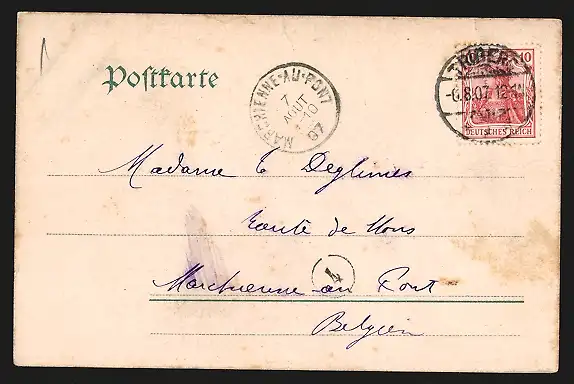 Postkarte
MARCHIENNE-AU-PONT
7
AOUT
1-10
07
TRIER
-6.8.07. 12-1
10
DEUTSCHES REICH
Madame C Deglimes
route de Mons
4
Marchienne au Pont
Belgien